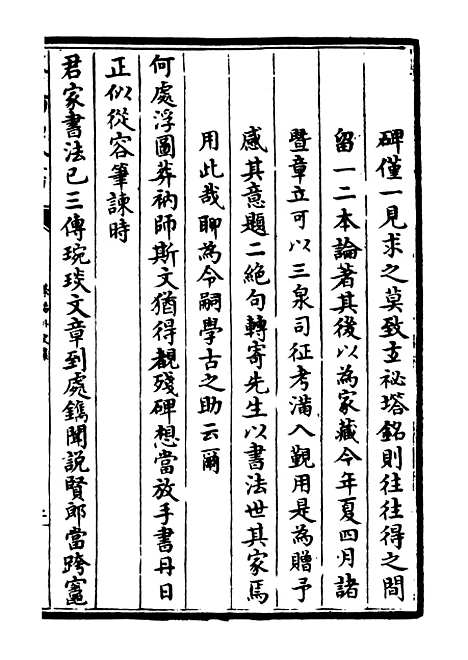 碑僅一見求之莫致玄祕塔銘則往往得之間
留一二本論著其後以為家藏今年夏四月諸
暨章立可以三泉司征考滿入覲用是為贈予
感其意題二絕句轉寄先生以書法世其家焉
用此哉聊為令嗣學古之助云爾
何處浮圖葬衲師斯文猶得覩殘碑想當放手書丹日
正似從容筆諫時
君家書法已三傳琬琰文章到處鐫聞說賢郎當跨竈